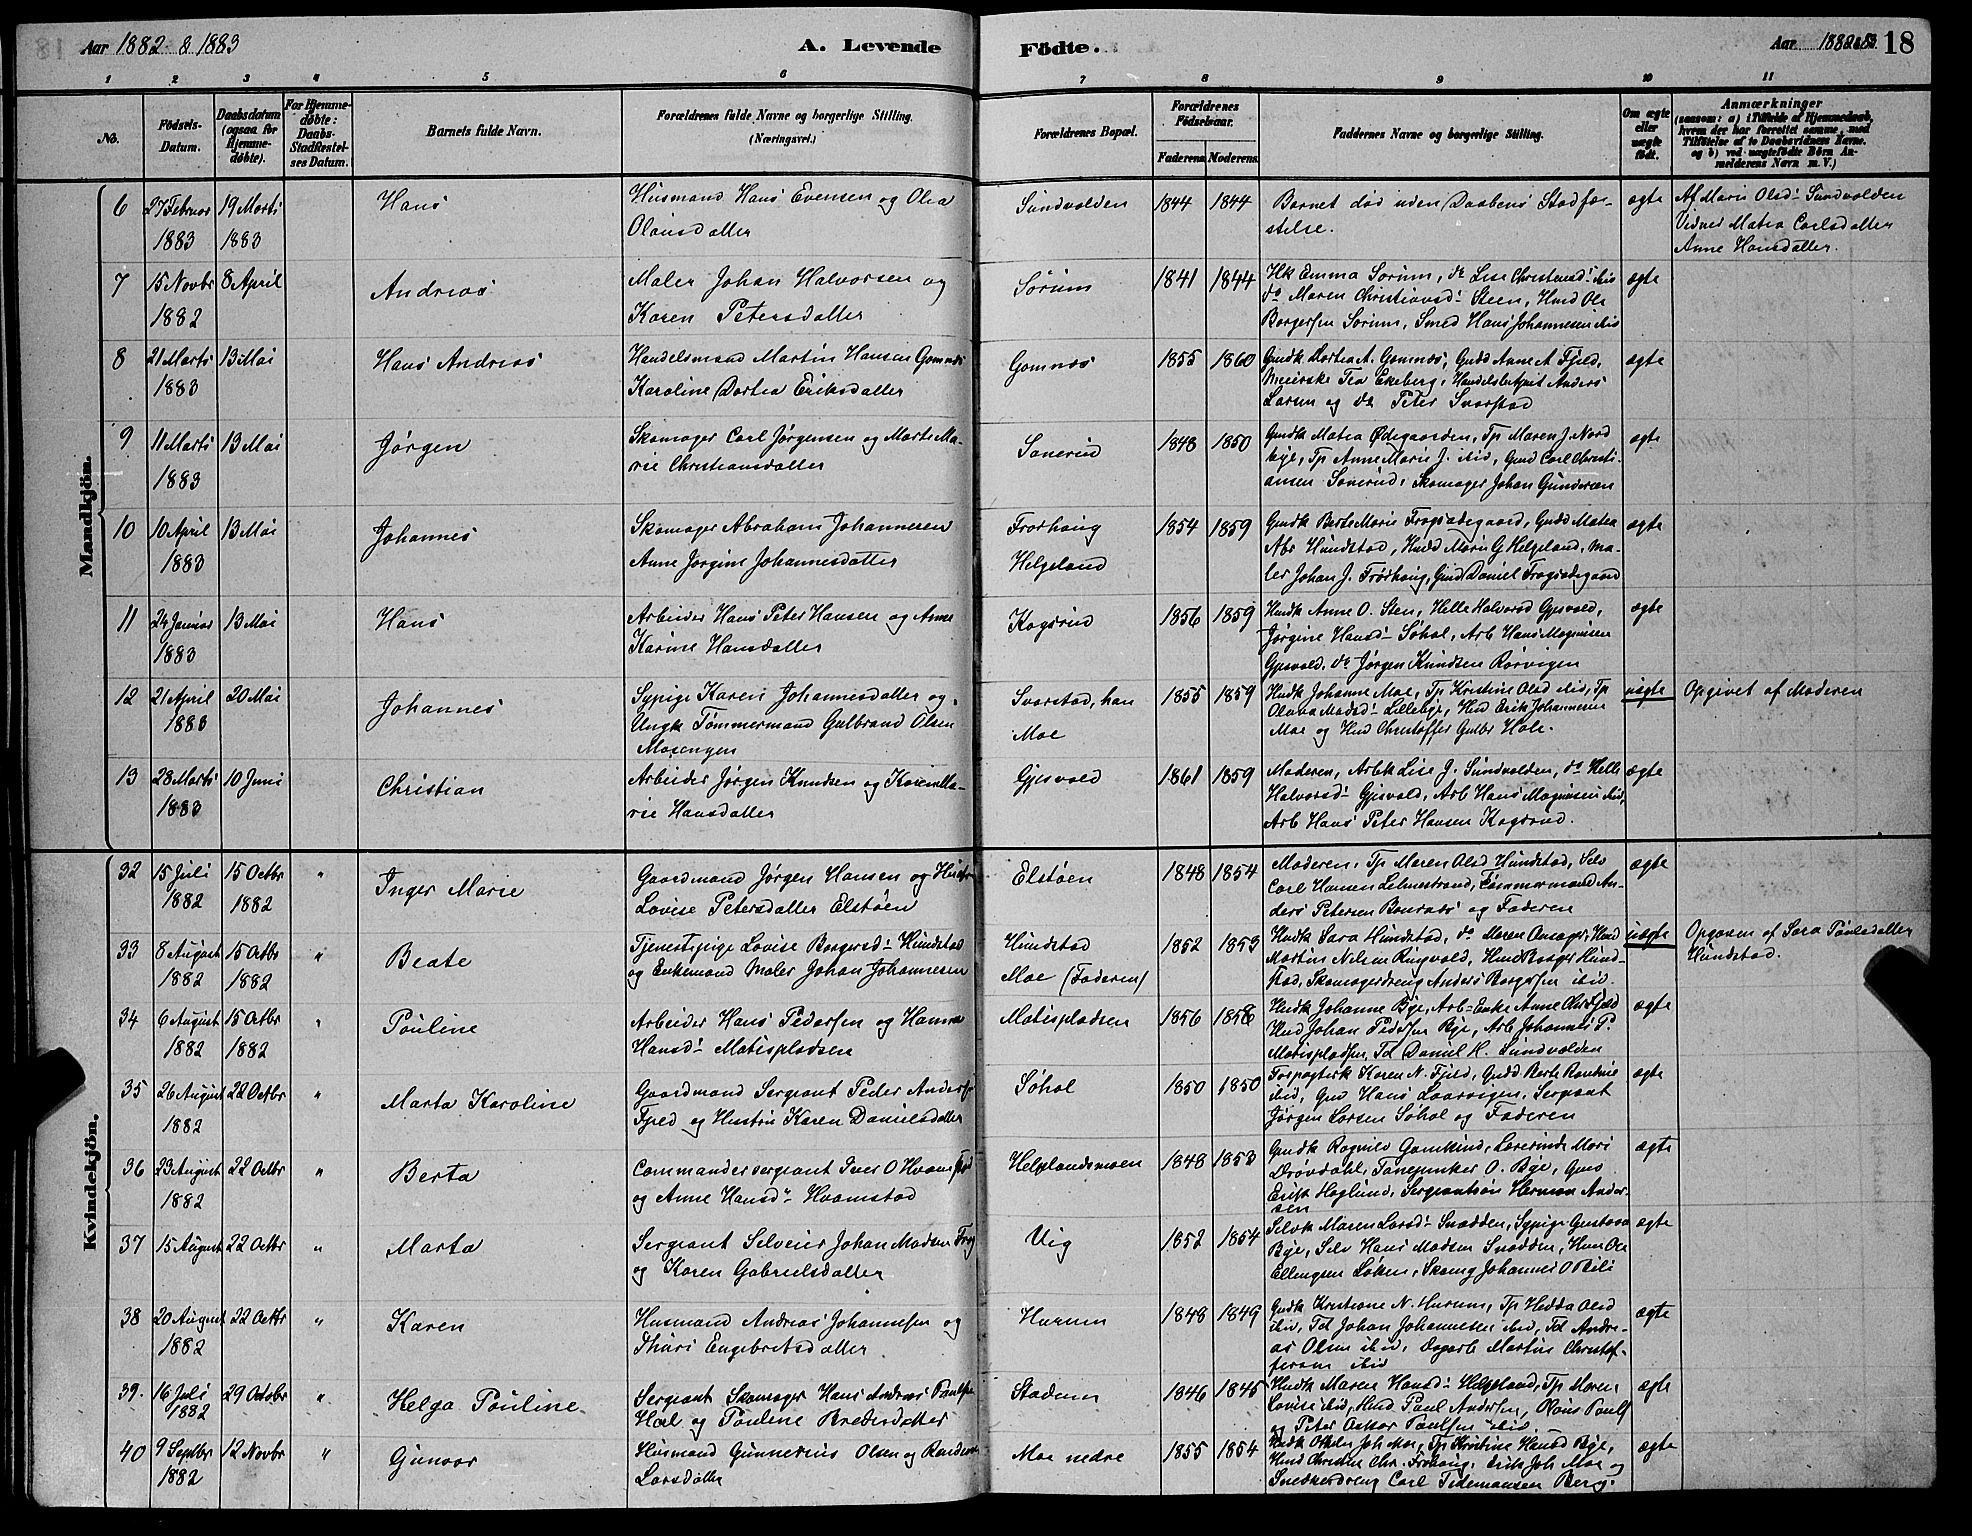 Aar 1882 & 1883
A. Levende Födte.
Aar 1882 & 83. 18
1 2 3 4 5 6 7 8 9 10 11
No.
Födsels-Datum.
Daabsdatum (ogsaa for Hjemmedöbte).
For Hjemmedöbte: Daabs-Stadfæstelses Datum.
Barnets fulde Navn.
Forældrenes fulde Navne og borgerlige Stilling. (Næringsvei.)
Forældrenes Bopæl.
Forældrenes Födselsaar.
Faderens Moderens
Faddernes Navne og borgerlig Stilling.
Om ægte eller uægte födt.
Anmærkninger (saasom: a) i Tilfælde af Hjemmedaab, hvem der har forrettet samme, med Tilföielse af to Daabsvidners Navne, og b) ved uægtefödte Börn Anmelderens Navn m. V.)
Mandkjön.
6 27 Februar 1883 19 Marts 1883 Hans
Husmand Hans Evensen og Olea
Olausdatter
Sundvolden 1844 1844
Barnet død uden Daabens Stadfæ-
stelse.
ægte
Af Marie Olsd: Sundvolden
Vidner Matea Carlsdatter
Anne Hansdatter.
7 15 Novbr 1882 8 April Andreas
Maler Johan Halvorsen og
Karen Petersdatter
Sørum 1841 1844
Hk Emma Sørum, do Lise Christensd: ibid
do Maren Christiansd: Steen, Hmd Ole
Borgersen Sørum, Smed Hans Johannesen ibid
ægte
8 21 Marts 1883 13 Mai Hans Andreas
Handelsmand Martin Hansen Gomnæs
Karoline Dortea Eriksdatter
Gomnæs 1855 1860
Gmdk Dortea A. Gomnæs, Gmdd Anne A Fjeld,
Meierske Tea Ekeberg, Handelsbetjent Anders
Larsen og do Peter Svarstad
ægte
9 11 Marts 1883 13 Mai Jørgen
Skomager Carl Jørgensen og Marte Ma-
rie Christiansdatter
Sønerud 1848 1850
Gmdk Matea Ødegaarden, Tp Maren J. Nord
bye, Tp Anne Marie J. ibid, Gmd Carl Christi-
ansen Sønerud, Skomager Johan Gundersen
ægte
10 10 April 1883 13 Mai Johannes
Skomager Abraham Johannesen
Anne Jørgine Johannesdatter
Frøshaug
Helgeland
1854 1859
Gmdk Berte Marie Frogsødegaard, Gmdd Matea
Abr Hundstad, Hmdd Marie G Helgeland, Ma-
ler Johan J. Frøshaug, Gmd Daniel Frogsødegaard
ægte
11 24 Januar 1883 13 Mai Hans
Arbeider Hans Peter Hansen og Anne
Karine Hansdatter
Kogsrud 1856 1859
Hmdk Anne O. Sten, Helle Halvorsd Gjesvold,
Jørgine Hansd: Søhol, Arb Hans Magnusen
Gjesvold, do Jørgen Knudsen Rørvigen
ægte
12 21 April 1883 20 Mai Johannes
Sypige Karen Johannesdatter og
Ungk Tømmermand Gulbrand Olsen
Mosengen
Svarstad, han
Moe
1855 1859
Hmdk Johanne Moe, Tp Kristine Olsd ibid, Tp
Oluva Madsd: Lillebye, Hmd Erik Johannesen
Moe og Hmd Christoffer Gulbr Hole.
uægte
Opgivet af Moderen
13 28 Marts 1883 10 Juni Christian
Arbeider Jørgen Knudsen og Karen Ma-
rie Hansdatter
Gjesvold 1861 1859
Moderen, Arbk Lise J. Sundvolden, do Helle
Halvorsd: Gjesvold, Arb Hans Magnusen ibid,
Arb Hans Peter Hansen Kogsrud.
ægte
Kvindekjön.
32 15 Juli 1882 15 Octbr 1882 " Inger Marie
Gaardmand Jørgen Hansen og Hustru
Lovise Petersdatter Elstøen
Elstøen 1848 1854
Moderen, Tp Maren Olsd Hundstad, Selv
Carl Hansen Lehnestrand, Tømmermand An-
ders Petersen Bønsnæs og Faderen
ægte
33 8 August 1882 15 Octbr 1882 " Beate
Tjenestepige Lovise Borgersd: Hundstad
og Enkemand Maler Johan Johannesen
Hundstad
Moe (Faderen)
1852 1853
Hmdk Sara Hundstad, do Maren Hmd
Martin Nilsen Ringvold, Hmd Borger Hund-
stad, Skomagerdreng Anders Borgersen ibid.
uægte
Opgiven af Sara Poulsdatter
Hundstad.
34 6 August 1882 15 Octbr 1882 " Pouline
Arbeider Hans Pedersen og Hanna
Hansd: Matisplodsen
Matisplodsen 1856 1856
Hmdk Johanne Bye, Arb-Enke Anne Chr Fjeld
Hmd Johan Pedersen Bye, Arb Johannes P.
Matisplodsen, Td Daniel H. Sundvolden
ægte
35 26 August 1882 22 Octbr " Marta Karoline
Gaardmand Sergeant Peder Anders:
Fjeld og Hustru Karen Danielsdatter
Søhol 1850 1850
Forpagterk Karen N. Fjeld, Gmdd Berte
ibid, Gmd Hans Laarvigen, Sergeant
Jørgen Larsen Søhol og Faderen
ægte
36 23 August 1882 22 Octbr " Berta
Commandersergeant Iver O Hvamstad
og Anne Hansd: Hvamstad
Helgelandsmoen 1848 1853
Gmdk Ragnild Gomklund, Lærerinde Mari
Drøvdahl, O. Bye, Gmd
Erik Høglund, Sergeantsøn Herman Ander-
sen
ægte
37 15 August 22 Octbr " Marta
Sergeant Selveier Johan Madsen Frog
og Karen Gabrielsdatter
Vig 1852 1854
Selvk Maren Larsd: Svadden, Sypige Gustava
Bye, Selv Hans Madsen Svadden, Hmd Ole
Ellingsen Løken, Skomg Johannes O Bili
ægte
38 20 August 1882 22 Octbr " Karen
Husmand Andreas Johannesen og
Thuri Engebretsdatter
Hurum 1848 1849
Gmdk Kristiane N. Hurum, Tp Hedda Olsd
ibid, Td Johan Johannesen ibid, Td Andre-
as Olsen ibid, Dagarb Martin Christof-
fersen ibid
ægte
39. 16 Juli 1882 29 Octobr " Helga Pouline
Sergeant Skomager Hans Andreas Paulsen
Hoel og Pouline Bredesdatter
Stadum 1846 1845
Hmdk Maren Hansd: Helgeland, Tp Maren
Lovise ibid, Hmd Paul Andersen, Olaus Paulss
og Peter Oskar Paulsen ibid
ægte
40 9 Septbr 1882 12 Novbr " Gunvor
Husmand Gunnerius Olsen og Randine
Larsdatter
Moe nedre 1855 1854
Hmdk Joh Moe, Tp Kristine Hansd Bye,
Hmd Christen Chr. Frøhaug, Erik Joh Moe og
Snedkerdreng Carl Tidemansen Berg.
ægte